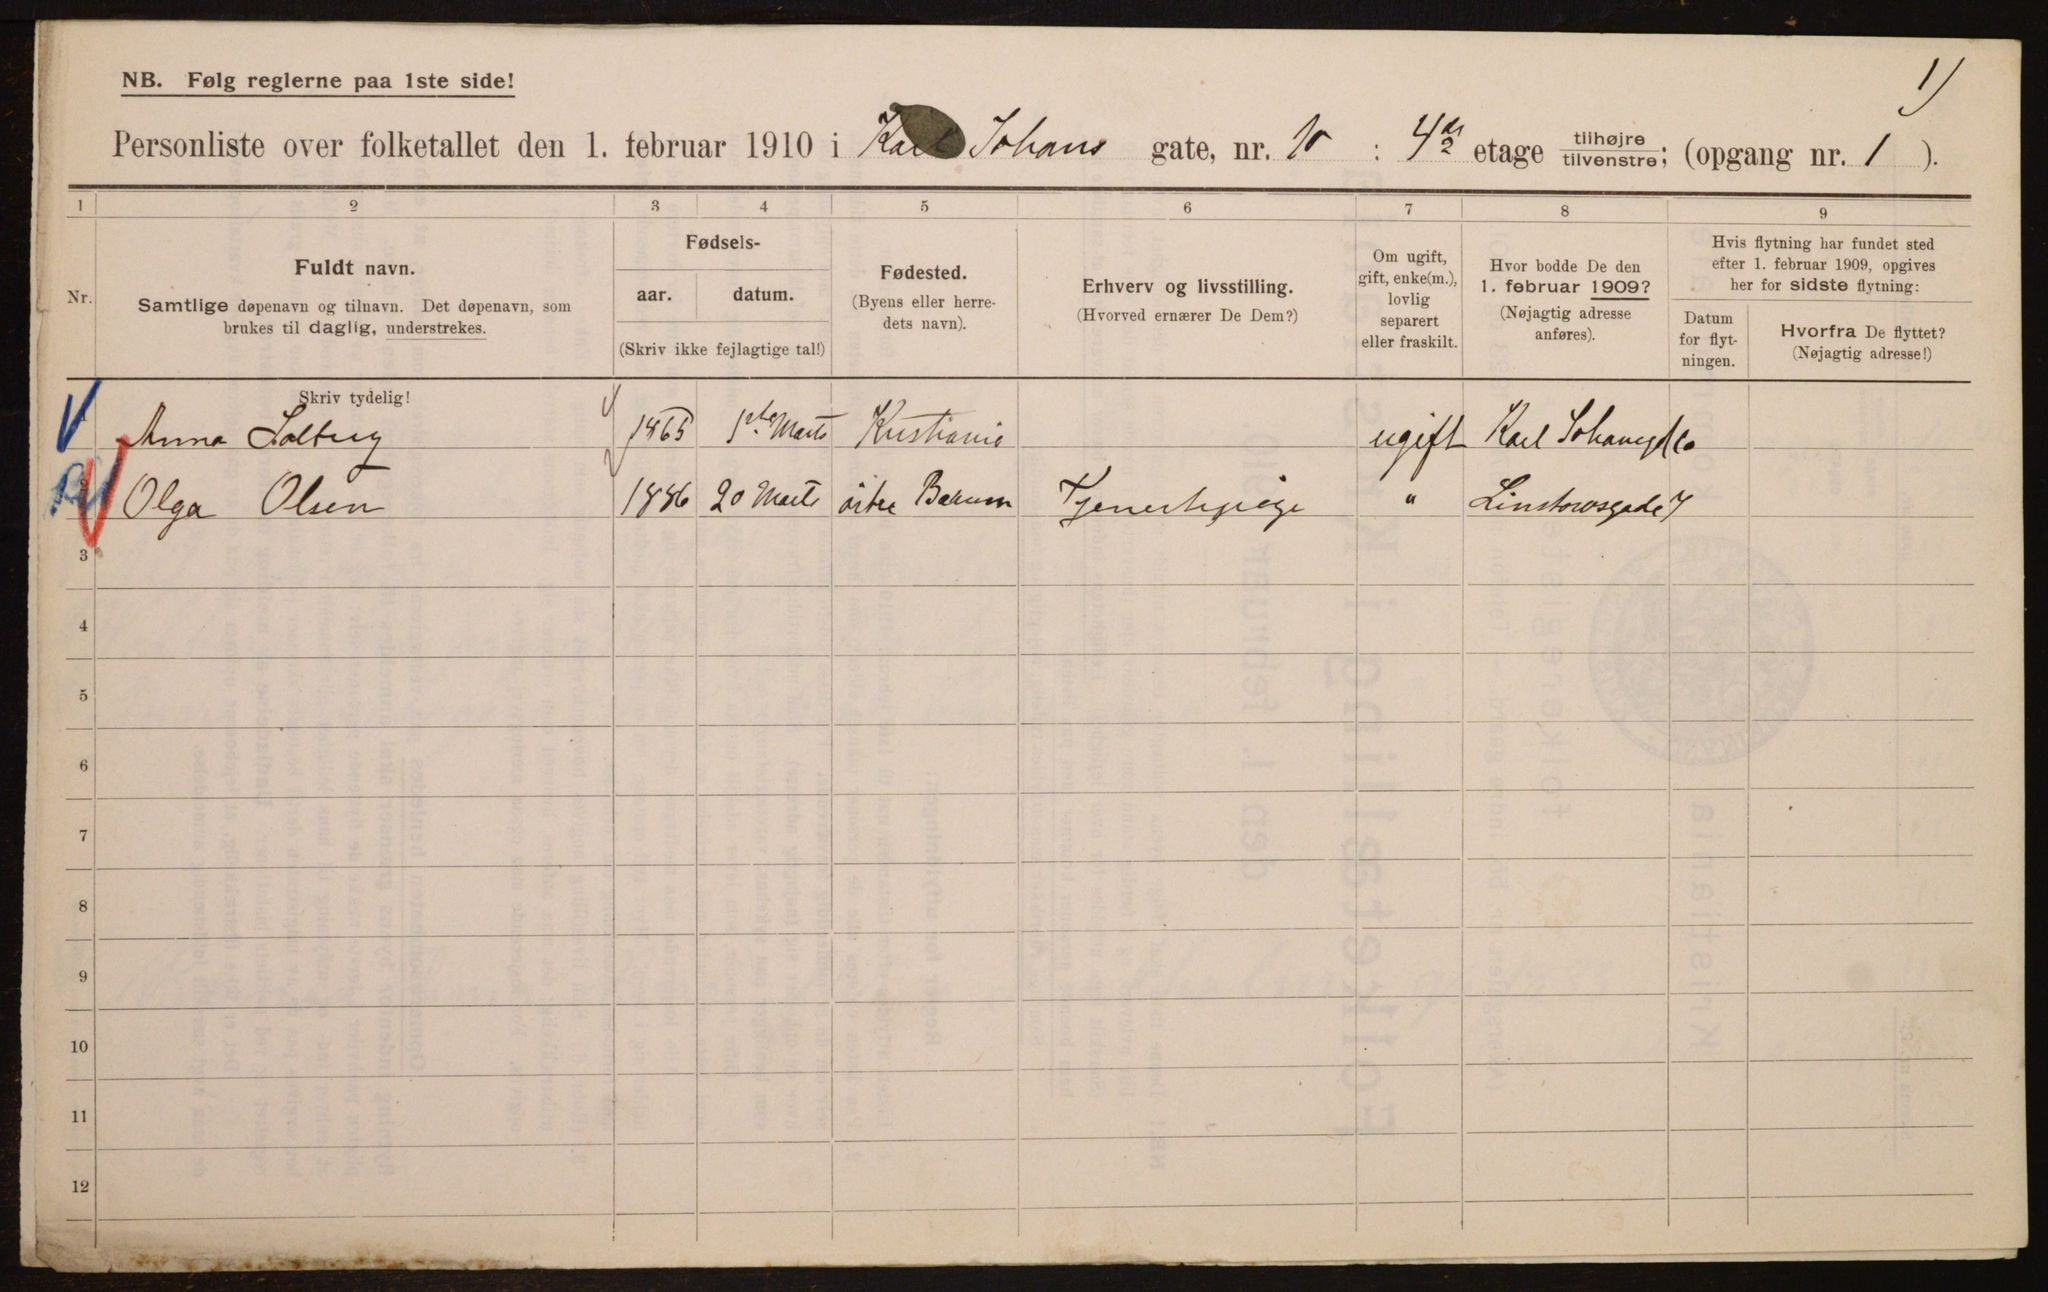 1)
NB. Følg reglerne paa 1ste side!
Personliste over folketallet den 1. februar 1910 i Karl Johans gate, nr. 10 : 4de etage tilhøjre tilvenstre; (opgang nr. 1 ).
1 2 3 4 5 6 7 8 9
Nr.
Fuldt navn.
Samtlige døpenavn og tilnavn. Det døpenavn, som
brukes til daglig, understrekes.
Fødsels-
aar.
datum.
(Skriv ikke fejlagtige tal!)
Fødested.
(Byens eller herre-
dets navn).
Erhverv og livsstilling.
(Hvorved ernærer De Dem?)
Om ugift,
gift, enke(m.),
lovlig
separert
eller fraskilt.
Hvor bodde De den
1. februar 1909?
(Nøjagtig adresse
anføres).
Hvis flytning har fundet sted
efter 1. februar 1909, opgives
her for sidste flytning:
Datum
for flyt-
ningen.
Hvorfra De flyttet?
(Nøjagtig adresse!)
Skriv tydelig!
Anna Solberg 1865 1ste Marts Kristiania ugift Karl Johansgd 10
Olga Olsen 1886 20 Marts östre Bærum Tjenestepige " Linstowsgade 7
3
4
5
6
7
8
9
10
11
12